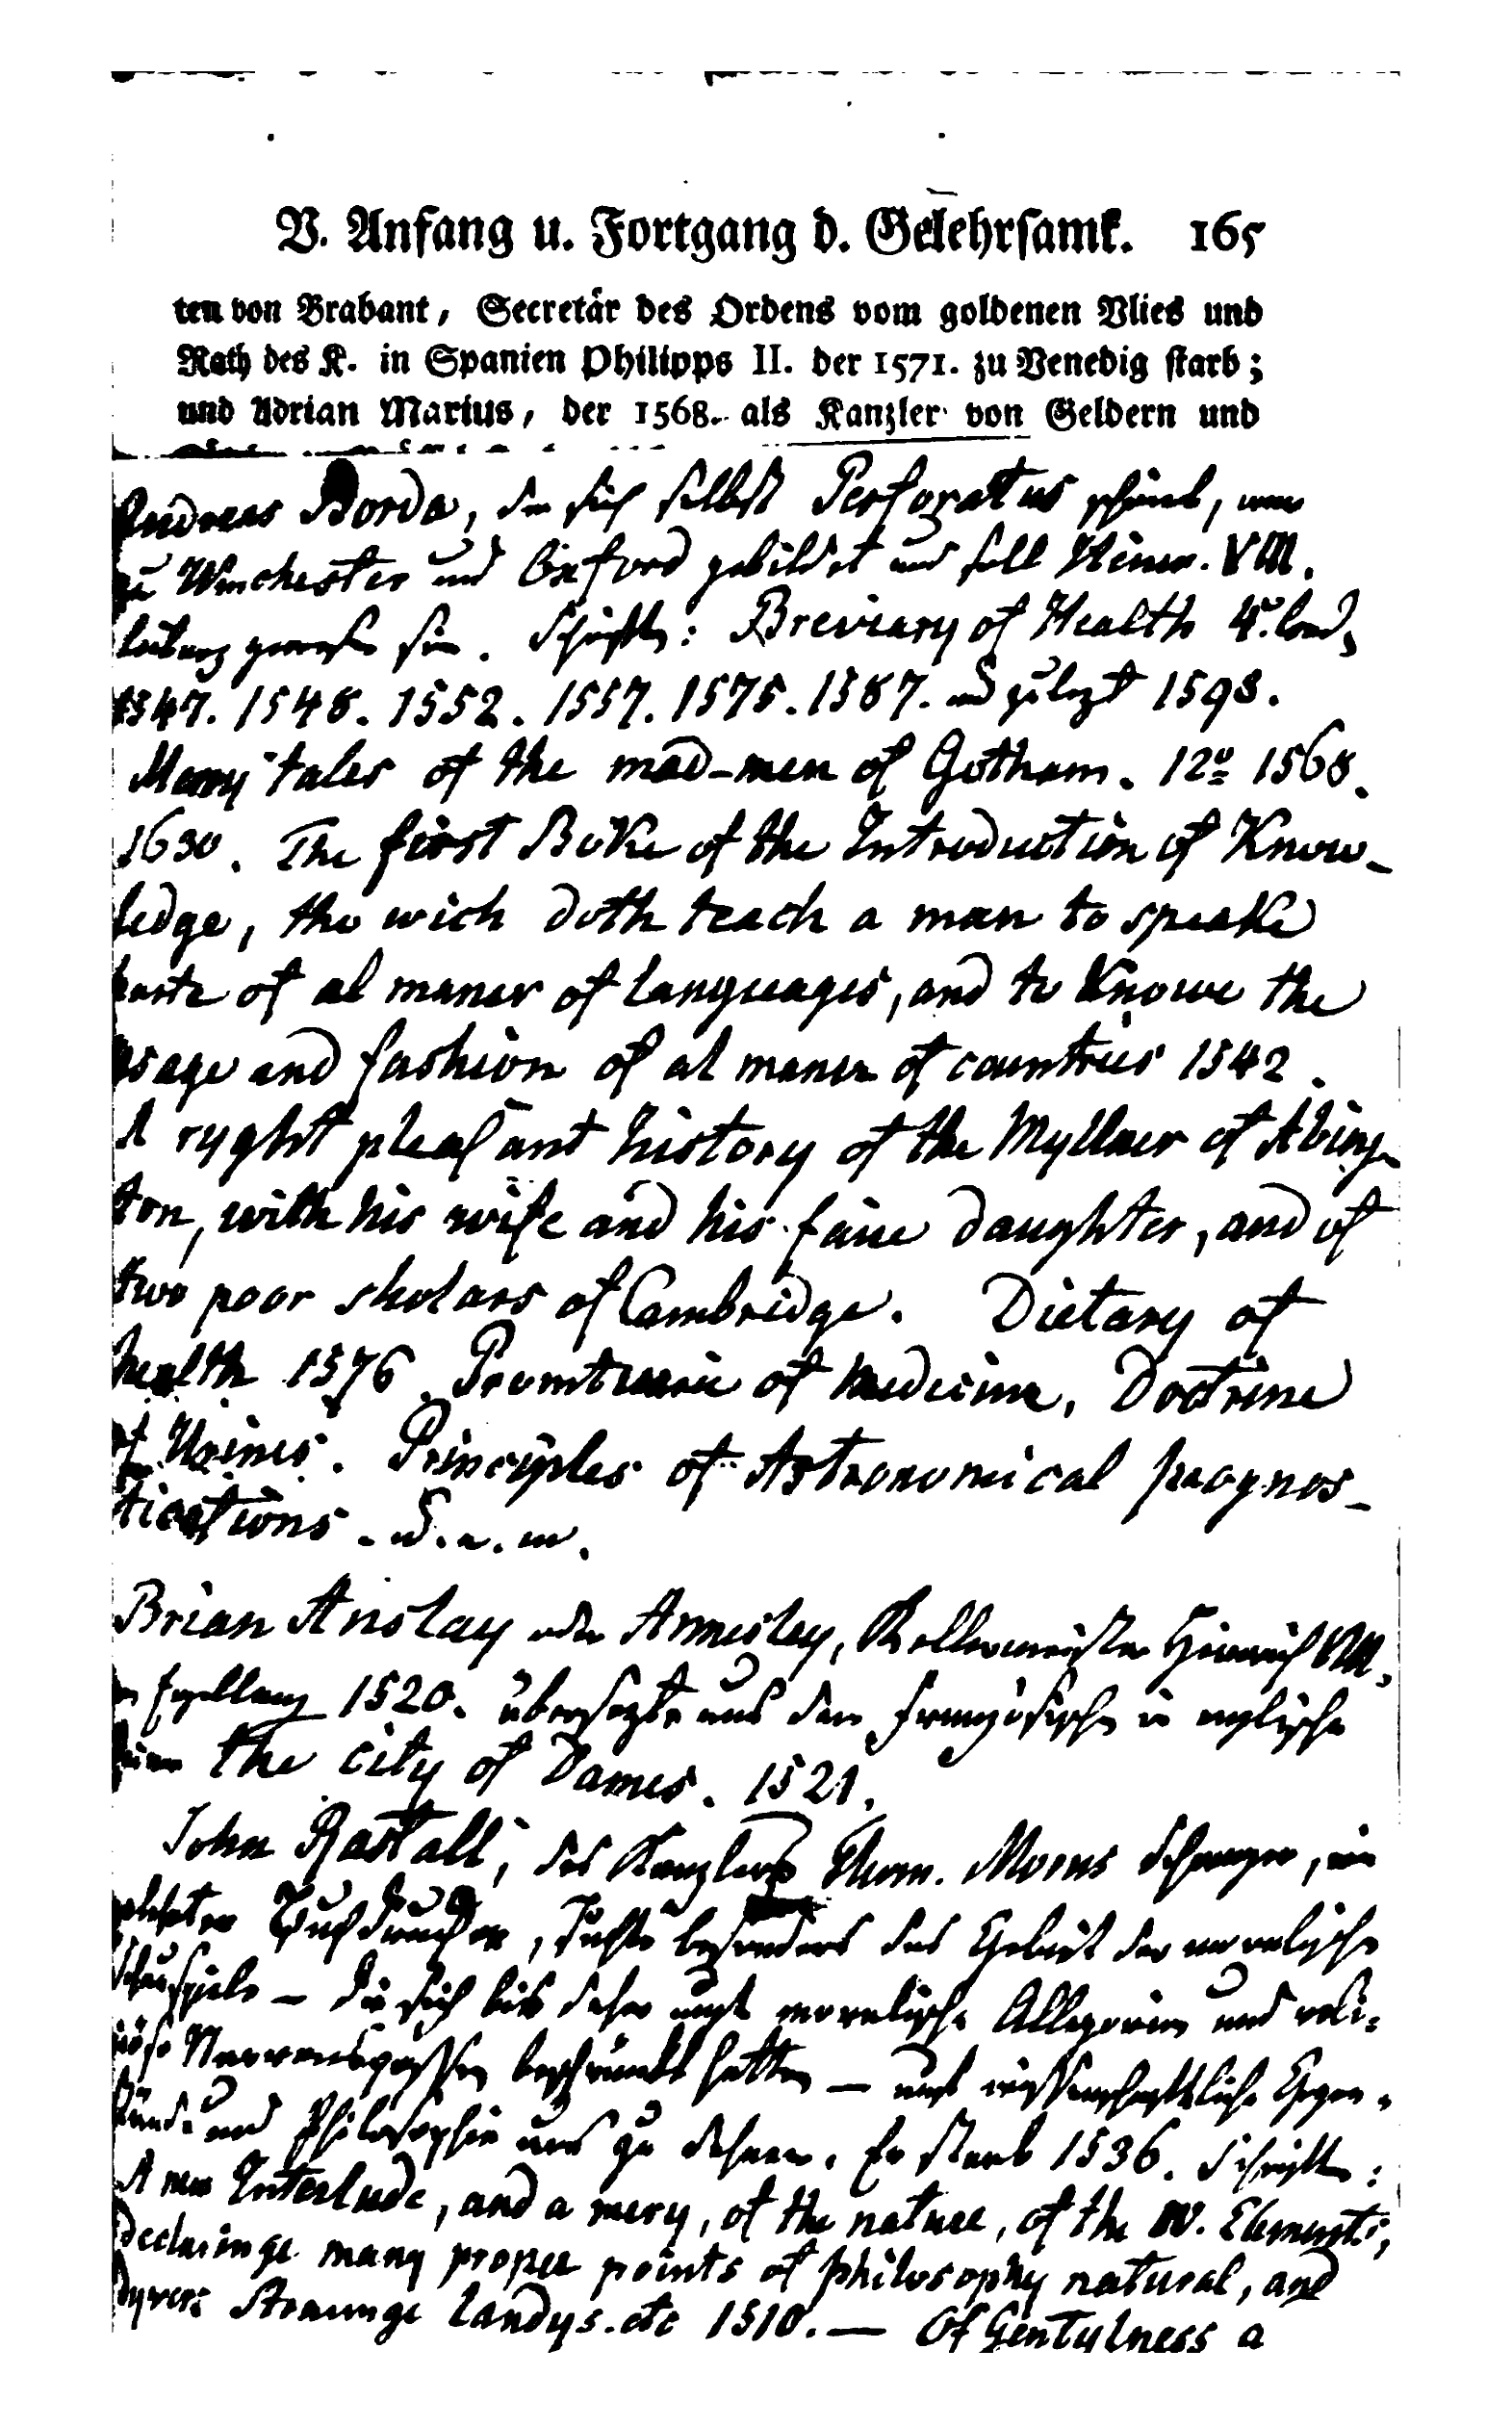 V. Anfang u. Fortgang d. Gelehrsamk. 165
ten von Brabant, Secretär des Ordens vom goldenen Vlies und
Rath des K. in Spanien Philipps II. der 1571. zu Venedig starb;
und Adrian Marius, der 1568. als Kanzler von Geldern und
Andreas Borda, der sich selbst Perforatus schrieb, war
zu Winchester und Oxford gebildet und soll Heinr. VIII.
Leibarzt gewesen sein. Schriften: Breviary of Health 4o. Lond.
1547. 1548. 1552. 1557. 1575. 1587. und zulezt 1598.
Merry tales of the mad-men of Gotham. 12o 1568.
1630. The first Boke of the Introduction of Know-
ledge, the wich doth teach a man to speake
parte of al maner of languages, and to Knowe the
usage and fashion of al maner of countries 1542.
A ryght pleasant history of the Myllner of Abing-
ton, with his wife and his faire daughter, and of
two poor skolars of Cambridge. Dietary of
health 1576. Promtuarie of medicine, Doctrine
of Urines. Principles of Astronomical prognos-
tications. u. a. m.
Brian Anslay oder Annesley, Kellermeister Heinrich VIII.
in England 1520. übersezte aus dem französischen in englische
the city of Dames. 1521.
John Rastall, des Kanzlers Thom. Morus Schwager, ein
gelehrter Buchdrucker, suchte besonders das Gebiet der moralischen
Schauspiele – die sich bis daher auf moralische Allegorien und reli-
giöse Narrenspossen beschränkt hatten – auf wissenschaftliche Gegen-
stände und Philosophie aus zu dehnen. Er starb 1536. Schriften:
A new Interlude, and a mery, of the nature, of the IV. Elements,
declaringe many proper points of philosophy natural, and
dyvers straunge landys. etc 1510. — Of Gentylness a